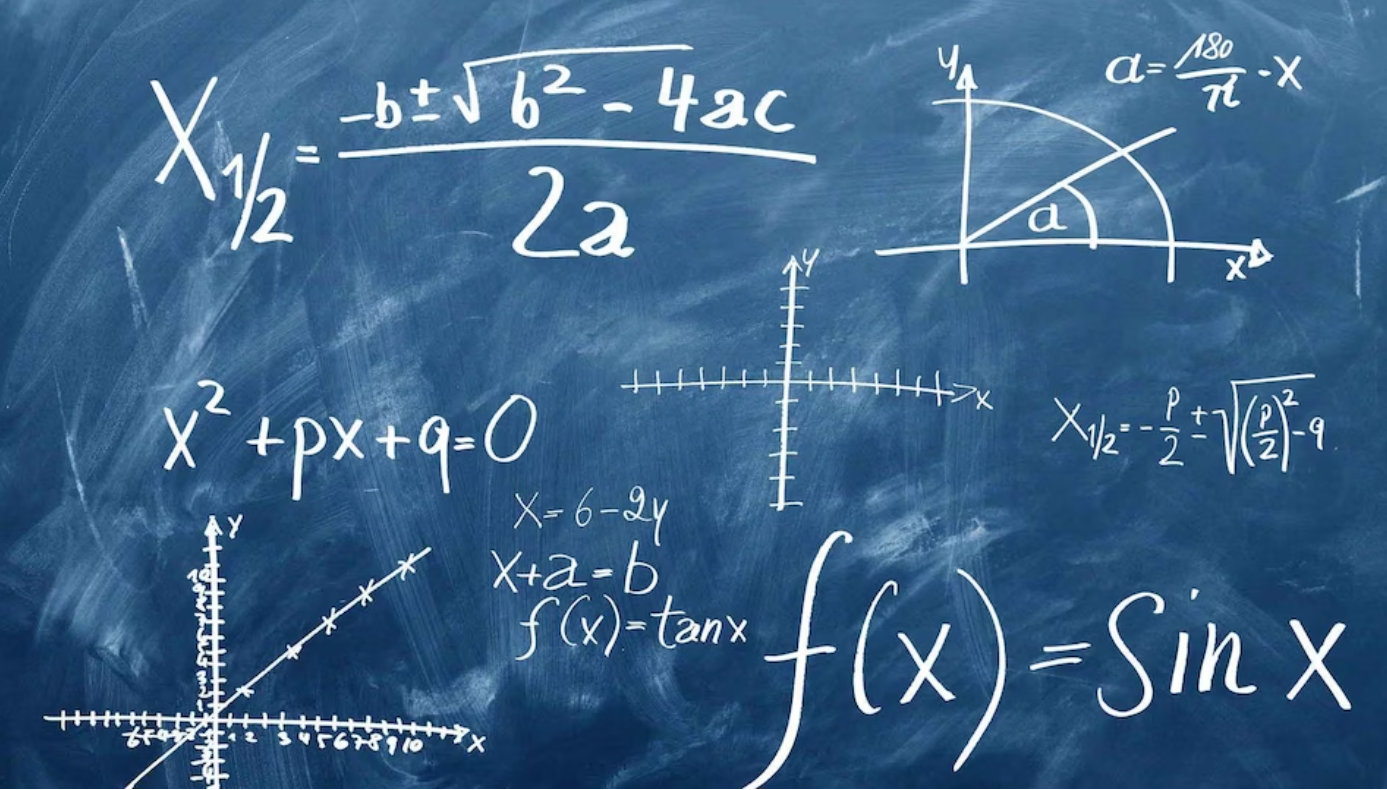 X1/2 = -b±√b² - 4ac / 2a
y
a = 180/π · x
a
x
y
x
x² + px + q = 0
X1/2 = -p/2 ± √(p/2)² - q
x = 6 - 2y
x + a = b
f(x) = tan x
f(x) = Sin x
y
10
1 2 3 4 5 6 7 8 9 10
x